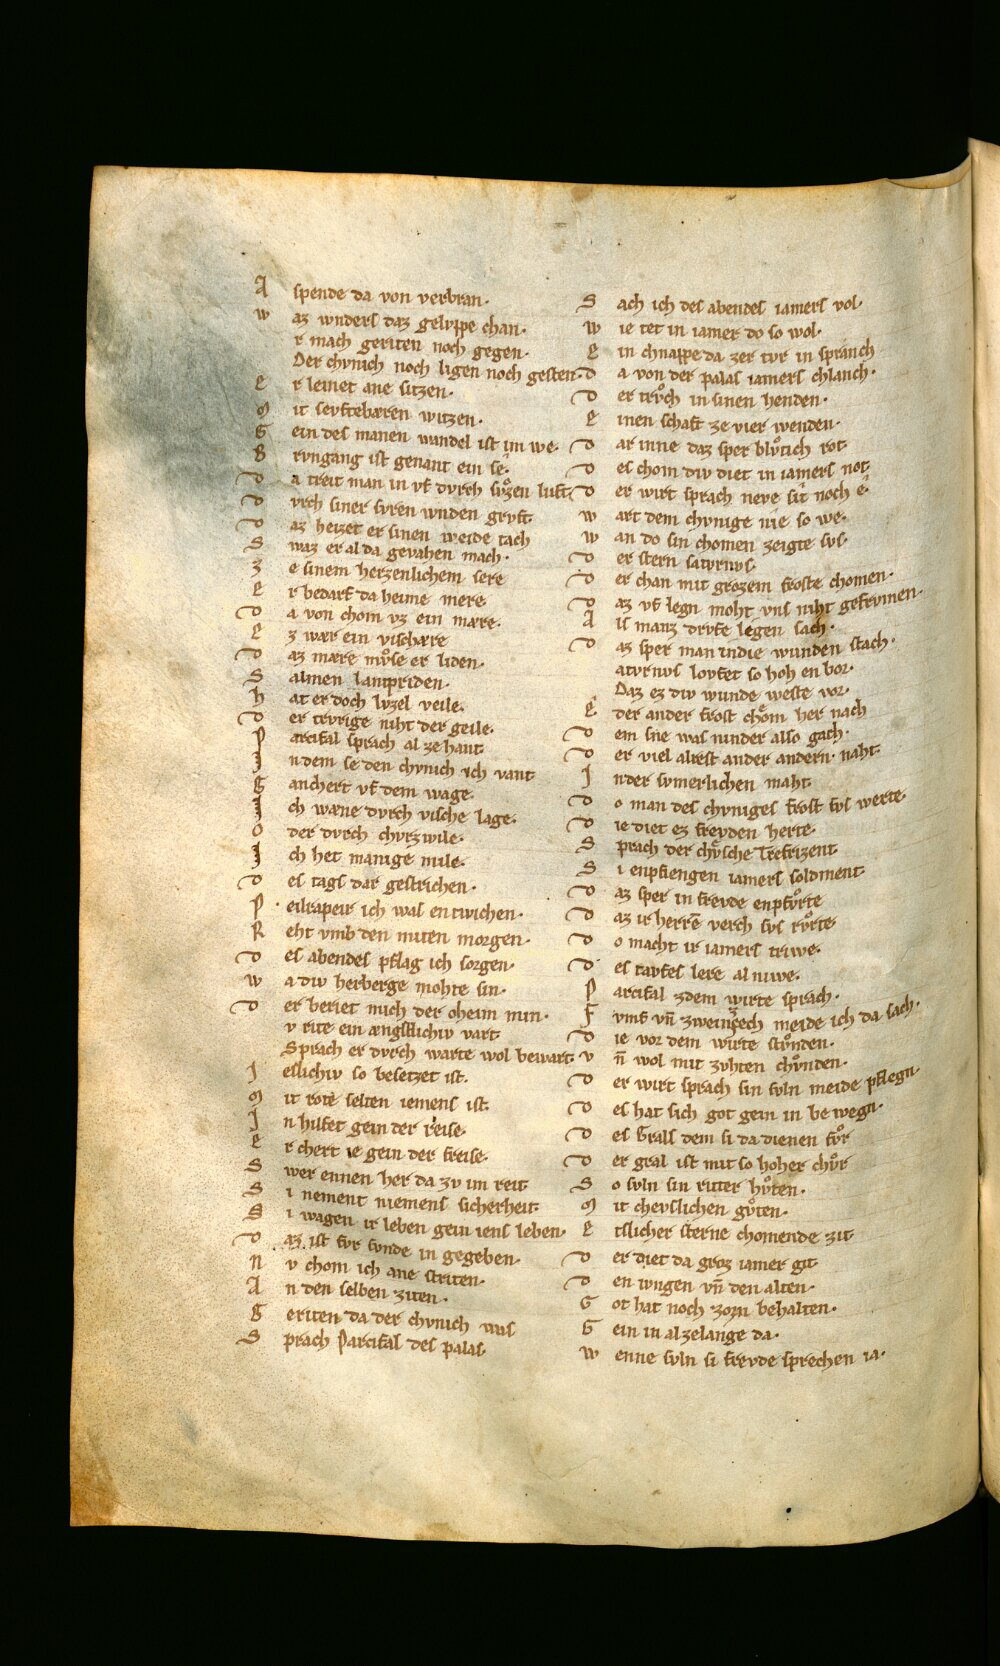 A spende da von verbran·
w az wnders daz gelvppe chan·
r mach geriten noch gegen·
Der chvnich noch ligen noch gesten·
e r leinet ane sitzen·
M it sevftebæren witzen·
G ein des manen wandel ist im we·
B rvngang ist genant ein se·
D a treit man in vf dvrch svͦzen luft·
D vrch siner svren wnden grvft
D az heizet er sinen weide tach
S waz er al da gevahen mach·
Z e sinem herzenlichem sere
E r bedarf da heime mere
D a von chom vz ein mære·
E z wær ein vischære
D az mære mvͦse er liden·
S almen lampriden·
h at er doch lvzel veile·
D er trvrige niht der geile·
P arcifal sprach al ze hant
J n dem se den chvnich ich vant
G anchert vf dem wage·
J ch wæne dvrch vische lage·
O der dvrch chvrzwile·
J ch het manige mile·
D es tags dar gestrichen·
P eilrapeir ich was entwichen·
R eht vmb den miten morgen·
D es abendes pflag ich sorgen·
w a div herberge mohte sin·
D er beriet mich der oheim min·
v rite ein ængstlichiv vart
Sprach er dvrch warte wol bewart·
J eslichiv so besetzet ist·
M it rote selten iemens ist
J n hilfet gein der reise·
E r chert ie gein der freise·
S wer ennen her da zv im reit
S i nement niemens sicherheit·
S i wagen ir leben gein iens leben·
D az ist fvr svnde in gegeben·
N v chom ich ane striten·
A n den selben ziten·
g eriten da der chvnich was
S prach Parcifal des palas
S ach ich des abendes iamers vol·
w ie tet in iamer do so wol·
E in chnappe da zer tvr in spranch
D a von der palas iamers chlanch·
D er trvͦch in sinen henden·
E inen schaft ze vier wenden·
D ar inne daz sper blvͦtich rot
D es chom div diet in iamers not
D er wirt sprach neve sit noch e
w art dem chvnige nie so we·
w an do sin chomen zeigte svs·
D er stern satvrnvs·
D er chan mit grozem froste chomen·
D az vf legn moht vns niht gefrvmen·
A ls manz drvfe legen sach·
D az sper man in die wunden stach·
atvrnvs lovfet so hoh en bor·
Daz ez div wunde weste vor·
e der ander frost chom her nach
D em sne was ninder also gach·
D er viel alrest ander andern naht
J n der svmerlichen maht
D o man des chvniges frost svs werte·
D ie diet ez frevden herte·
S prach der chvͤsche Trefrizent
S i enpfiengen iamers soldiment
D az sper in frevde enpfvͦrte
D az ir herrē verch svs rvͦrte
D o macht ir iamers triwe·
D es tavfes lere al niwe·
P arcifal zdem wirte sprach·
F vmf vn̄ zweinzech meide ich da sach·
D ie vor dem wirte stvͦnden·
v n̄ wol mit zvhten chvͦnden·
D er wirt sprach sin svln meide pflegn·
D es hat sich got gein in bewegn·
D es Grals dem si da dienen fvͦr
D er gral ist mit so hoher chvͦr
S o svln sin ritter hvͦten·
M it chevslichen gvͦten·
E tslicher sterne chomende zit
D er diet da groz iamer git
D en ivngen vn̄ den alten·
G ot hat noch zorn behalten·
G ein in al zelange da·
w enne svln si frevde sprechen ia·